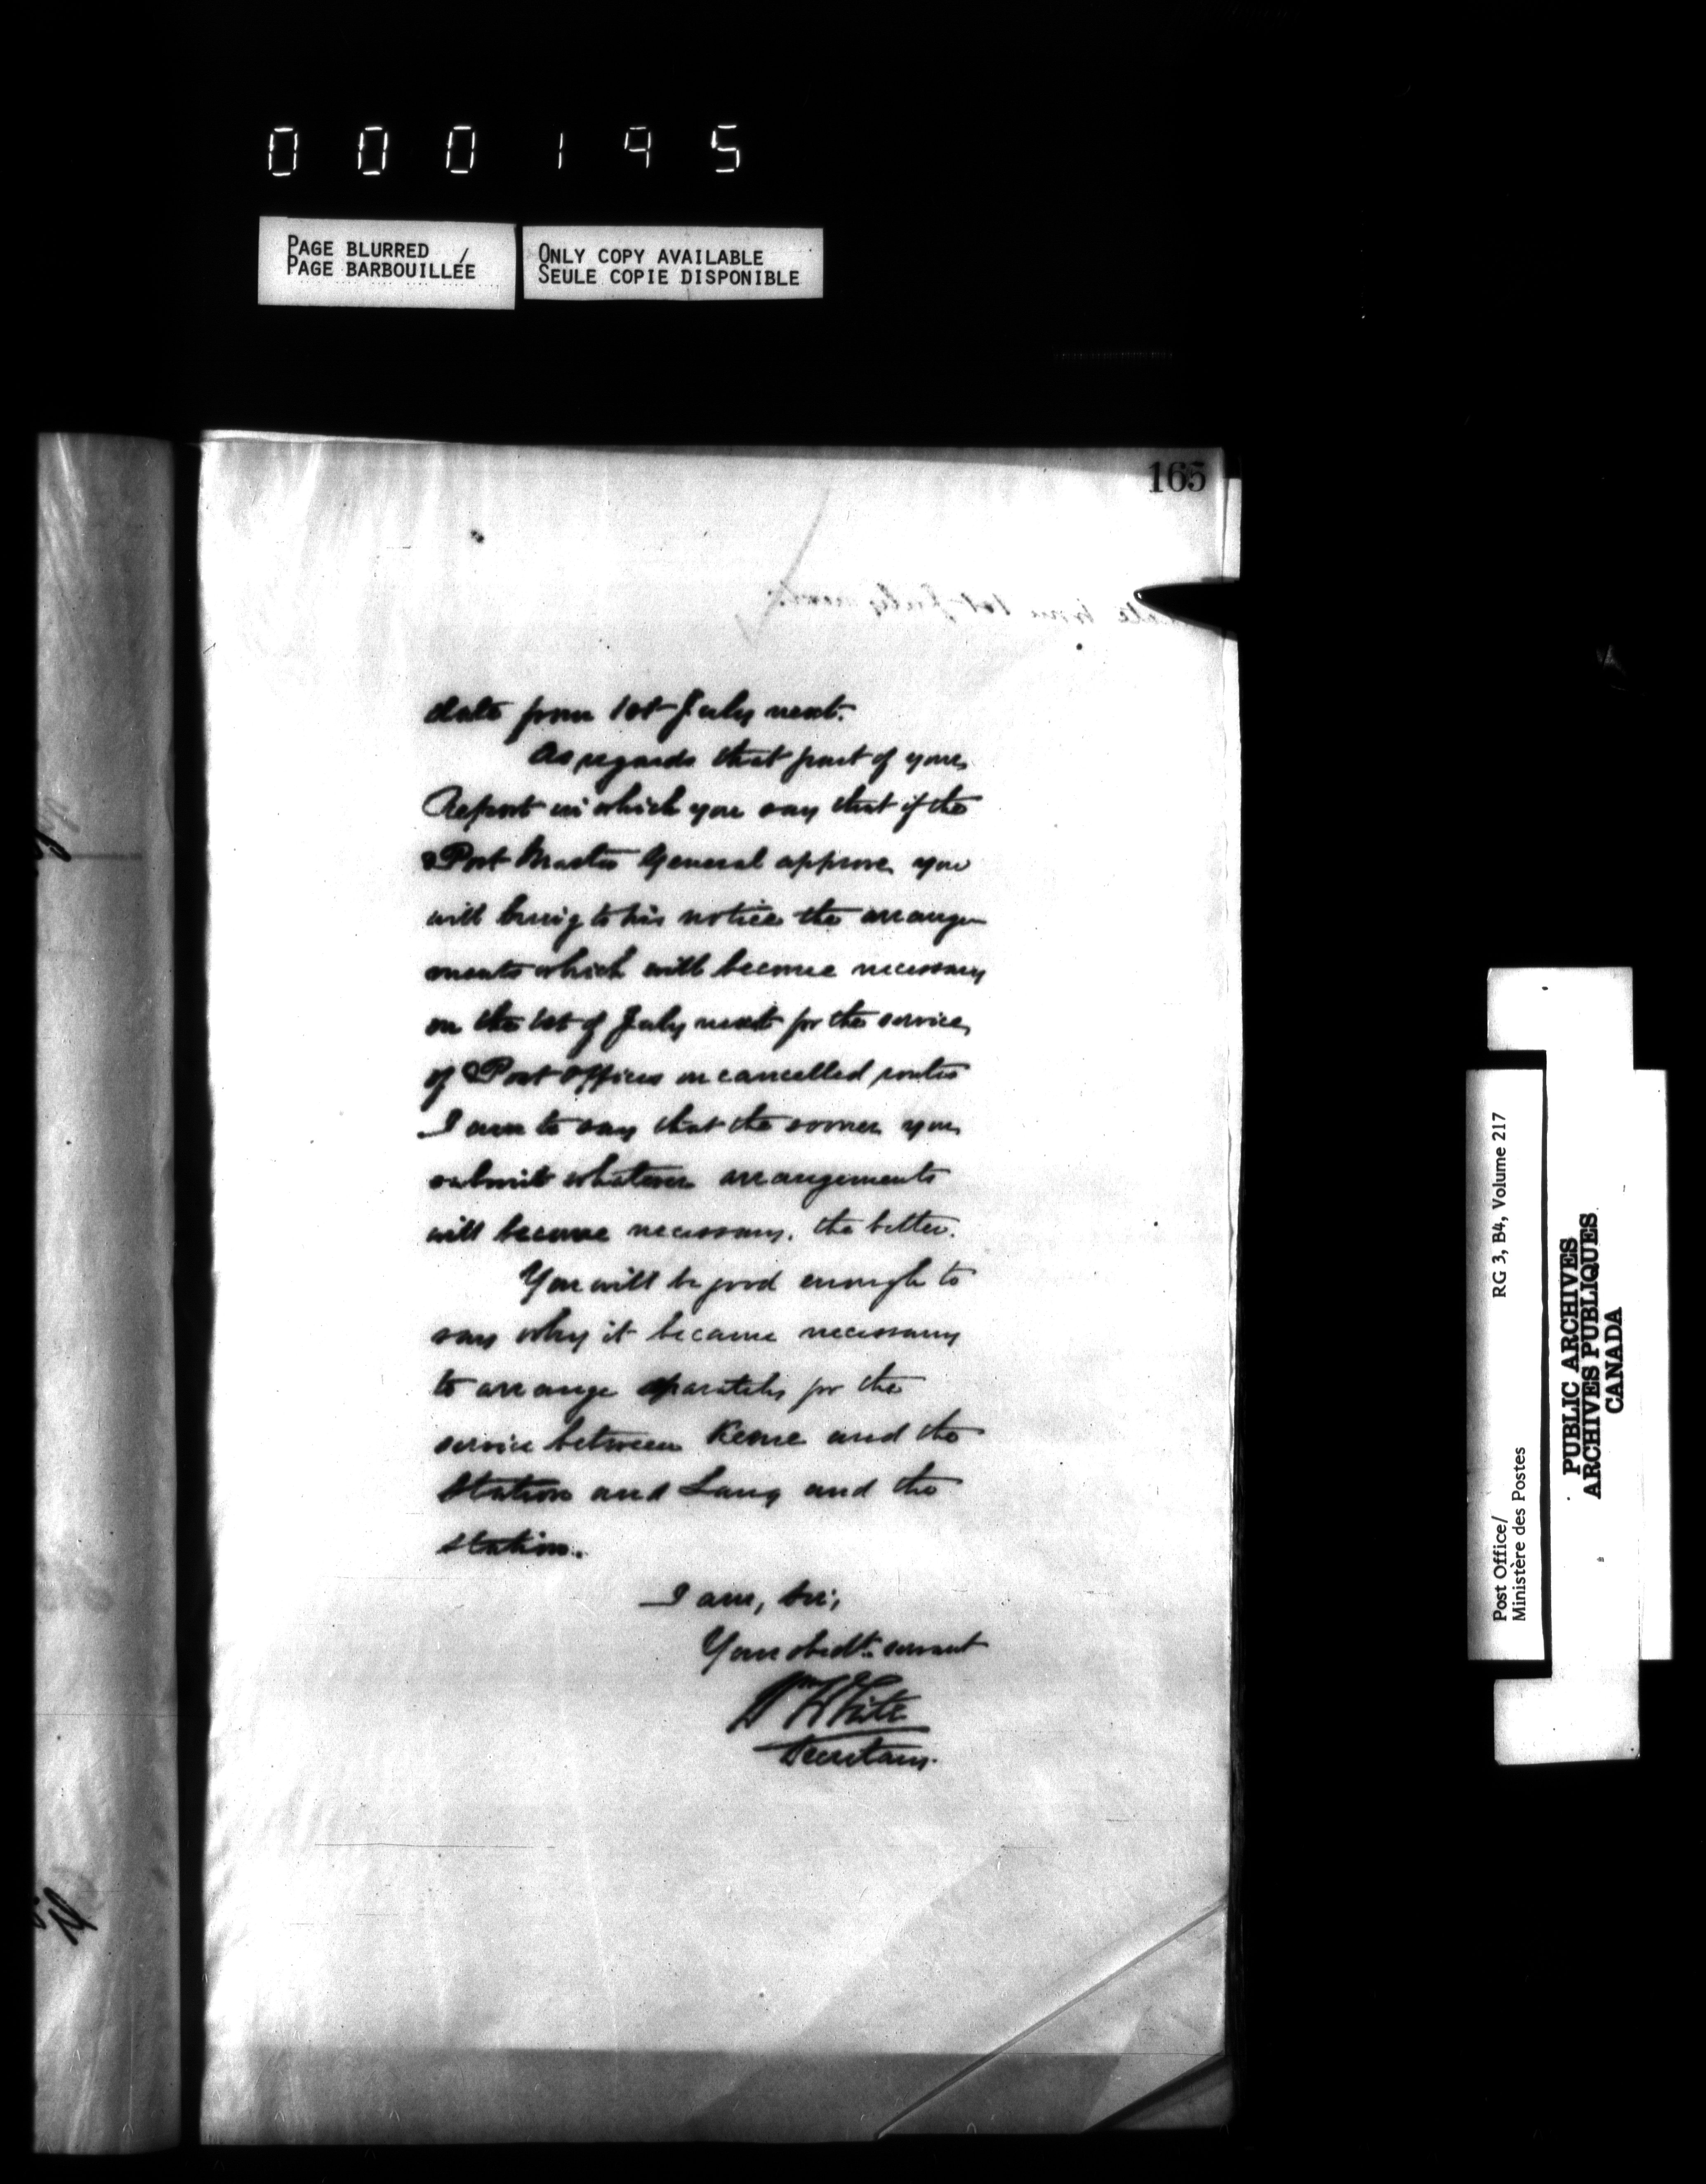 000195
PAGE BLURRED /
PAGE BARBOUILLÉE
ONLY COPY AVAILABLE
SEULE COPIE DISPONIBLE
165
date from 1st July next.
As regards that part of your
Report in which you say that if the
Post Master General approve, you
will bring to his notice the arrange
ments which will become necessary
on the 1st of July next for the service
of Post Offices on cancelled routes
I am to say that the sooner you
submit whatever arrangements
will become necessary, the better.
You will be good enough to
say why it became necessary
to arrange separately for the
service between Keene and the
Station and Lang and the
station.
I am, Sir,
Your obedt. servant
Wm White
Secretary.
Post Office/
Ministère des Postes
RG 3, B4, Volume 217
PUBLIC ARCHIVES
ARCHIVES PUBLIQUES
CANADA